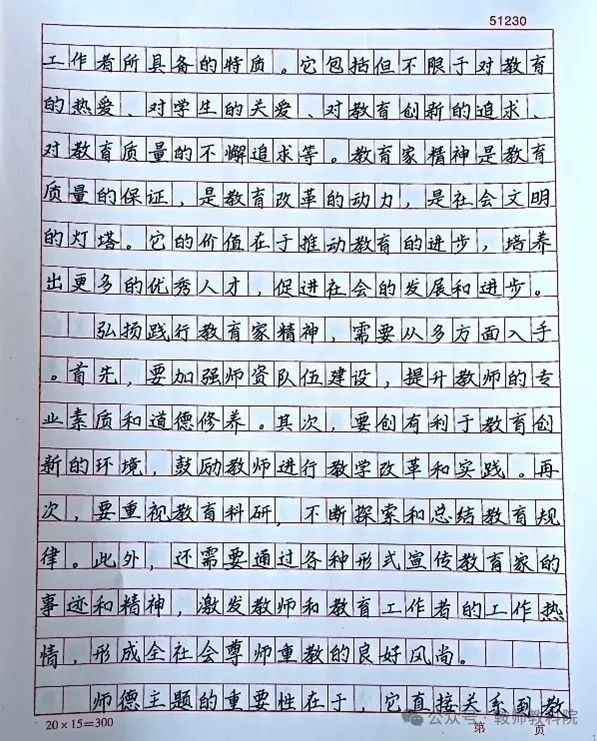 51230
工作者所具备的特质。它包括但不限于对教育
的热爱、对学生的关爱、对教育创新的追求、
对教育质量的不懈追求等。教育家精神是教育
质量的保证，是教育改革的动力，是社会文明
的灯塔。它的价值在于推动教育的进步，培养
出更多的优秀人才，促进社会的发展和进步。
弘扬践行教育家精神，需要从多方面入手
。首先，要加强师资队伍建设，提升教师的专
业素质和道德修养。其次，要创有利于教育创
新的环境，鼓励教师进行教学改革和实践。再
次，要重视教育科研，不断探索和总结教育规
律。此外，还需要通过各种形式宣传教育家的
事迹和精神，激发教师和教育工作者的工作热
情，形成全社会尊师重教的良好风尚。
师德主题的重要性在于，它直接关系到教
20×15=300 第 页
公众号·鞍师教科院